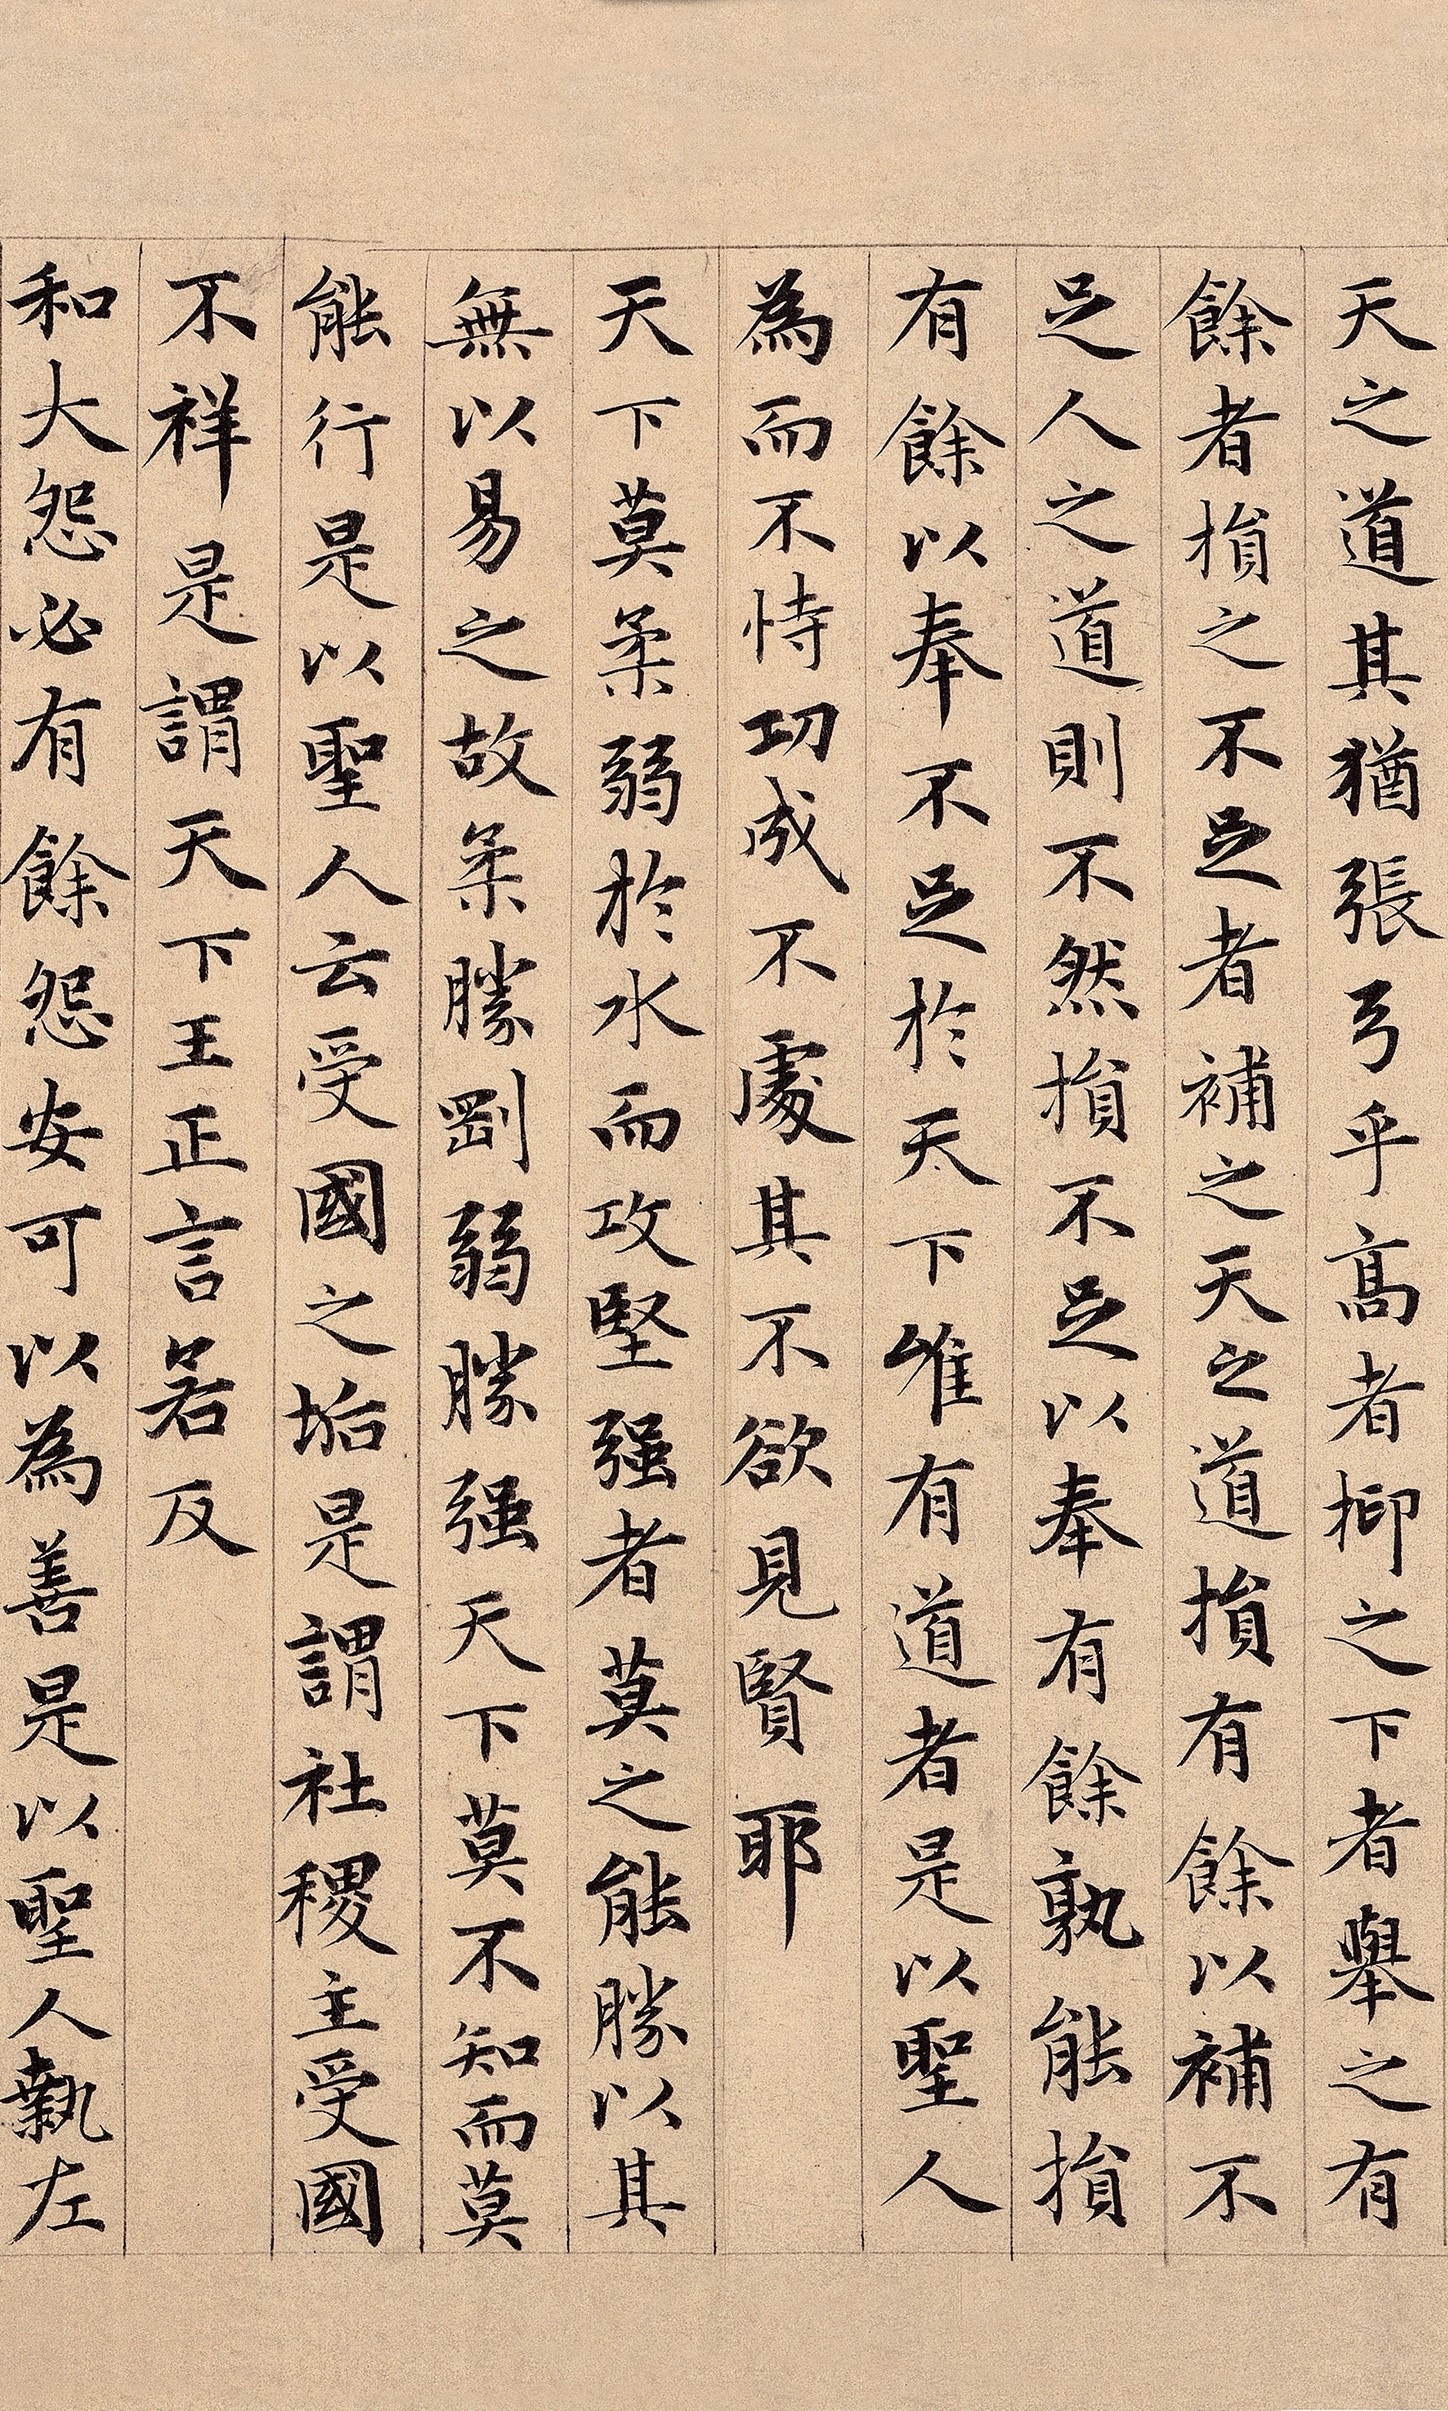 天之道其猶張弓乎高者抑之下者舉之有
餘者損之不足者補之天之道損有餘以補不
足人之道則不然損不足以奉有餘孰能損
有餘以奉不足於天下唯有道者是以聖人
為而不恃功成不處其不欲見賢耶
天下莫柔弱於水而攻堅强者莫之能勝以其
無以易之故柔勝剛弱勝强天下莫不知而莫
能行是以聖人云受國之垢是謂社稷主受國
不祥是謂天下王正言若反
和大怨必有餘怨安可以為善是以聖人執左